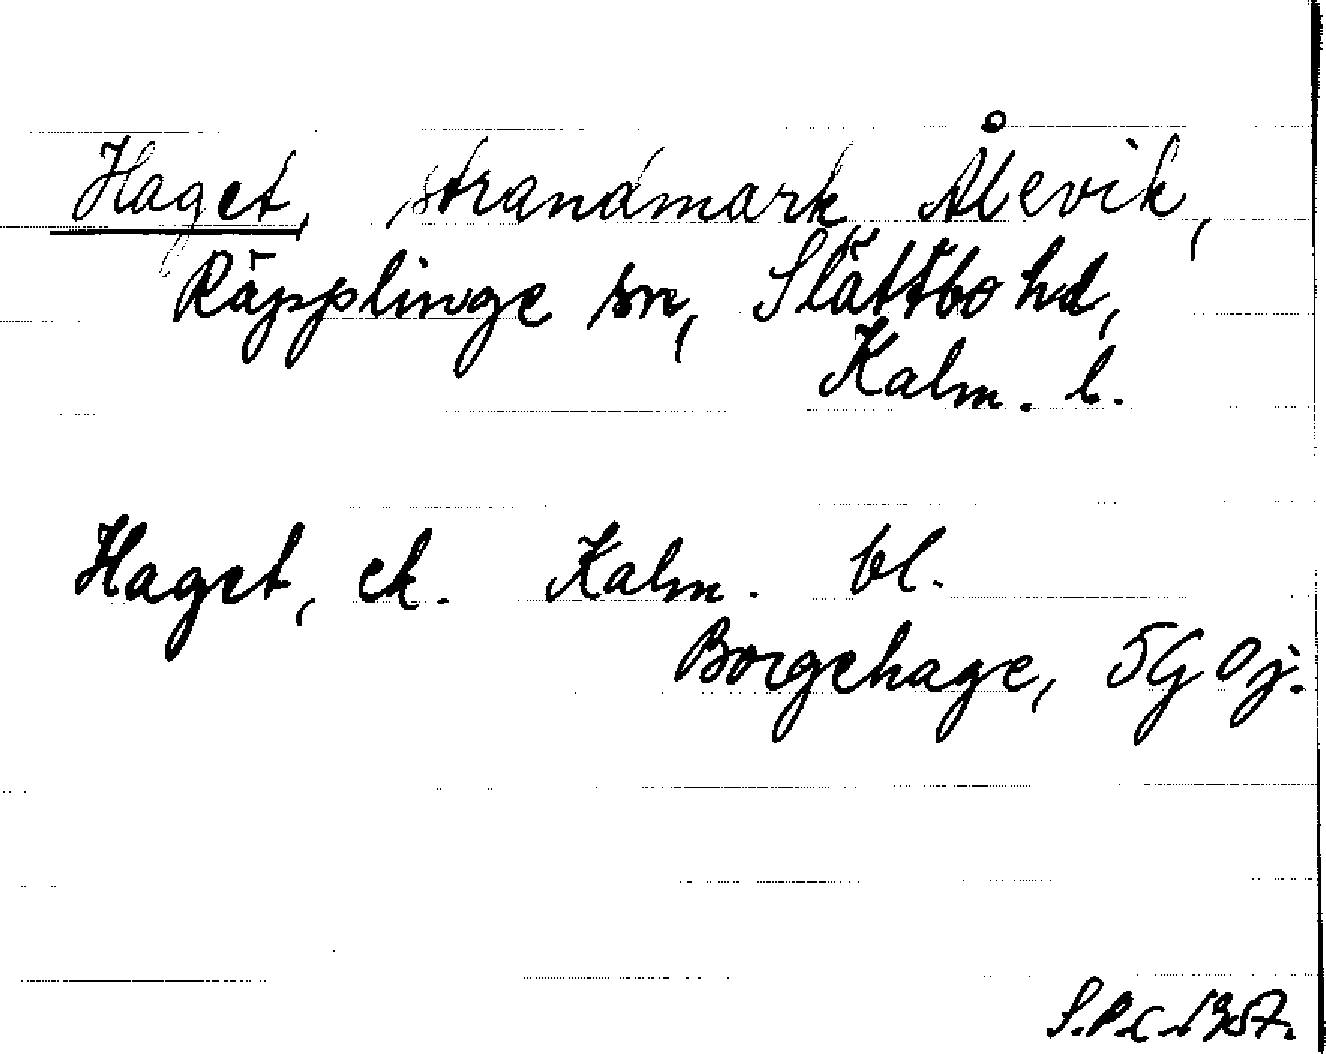 Haget, strandmark Ålevik,
Räpplinge sn, Slättbo hd,
Kalm. l.
Haget, ek. Kalm. bl.
Borgehage, 5G 0j.
S.P.C. 1957.